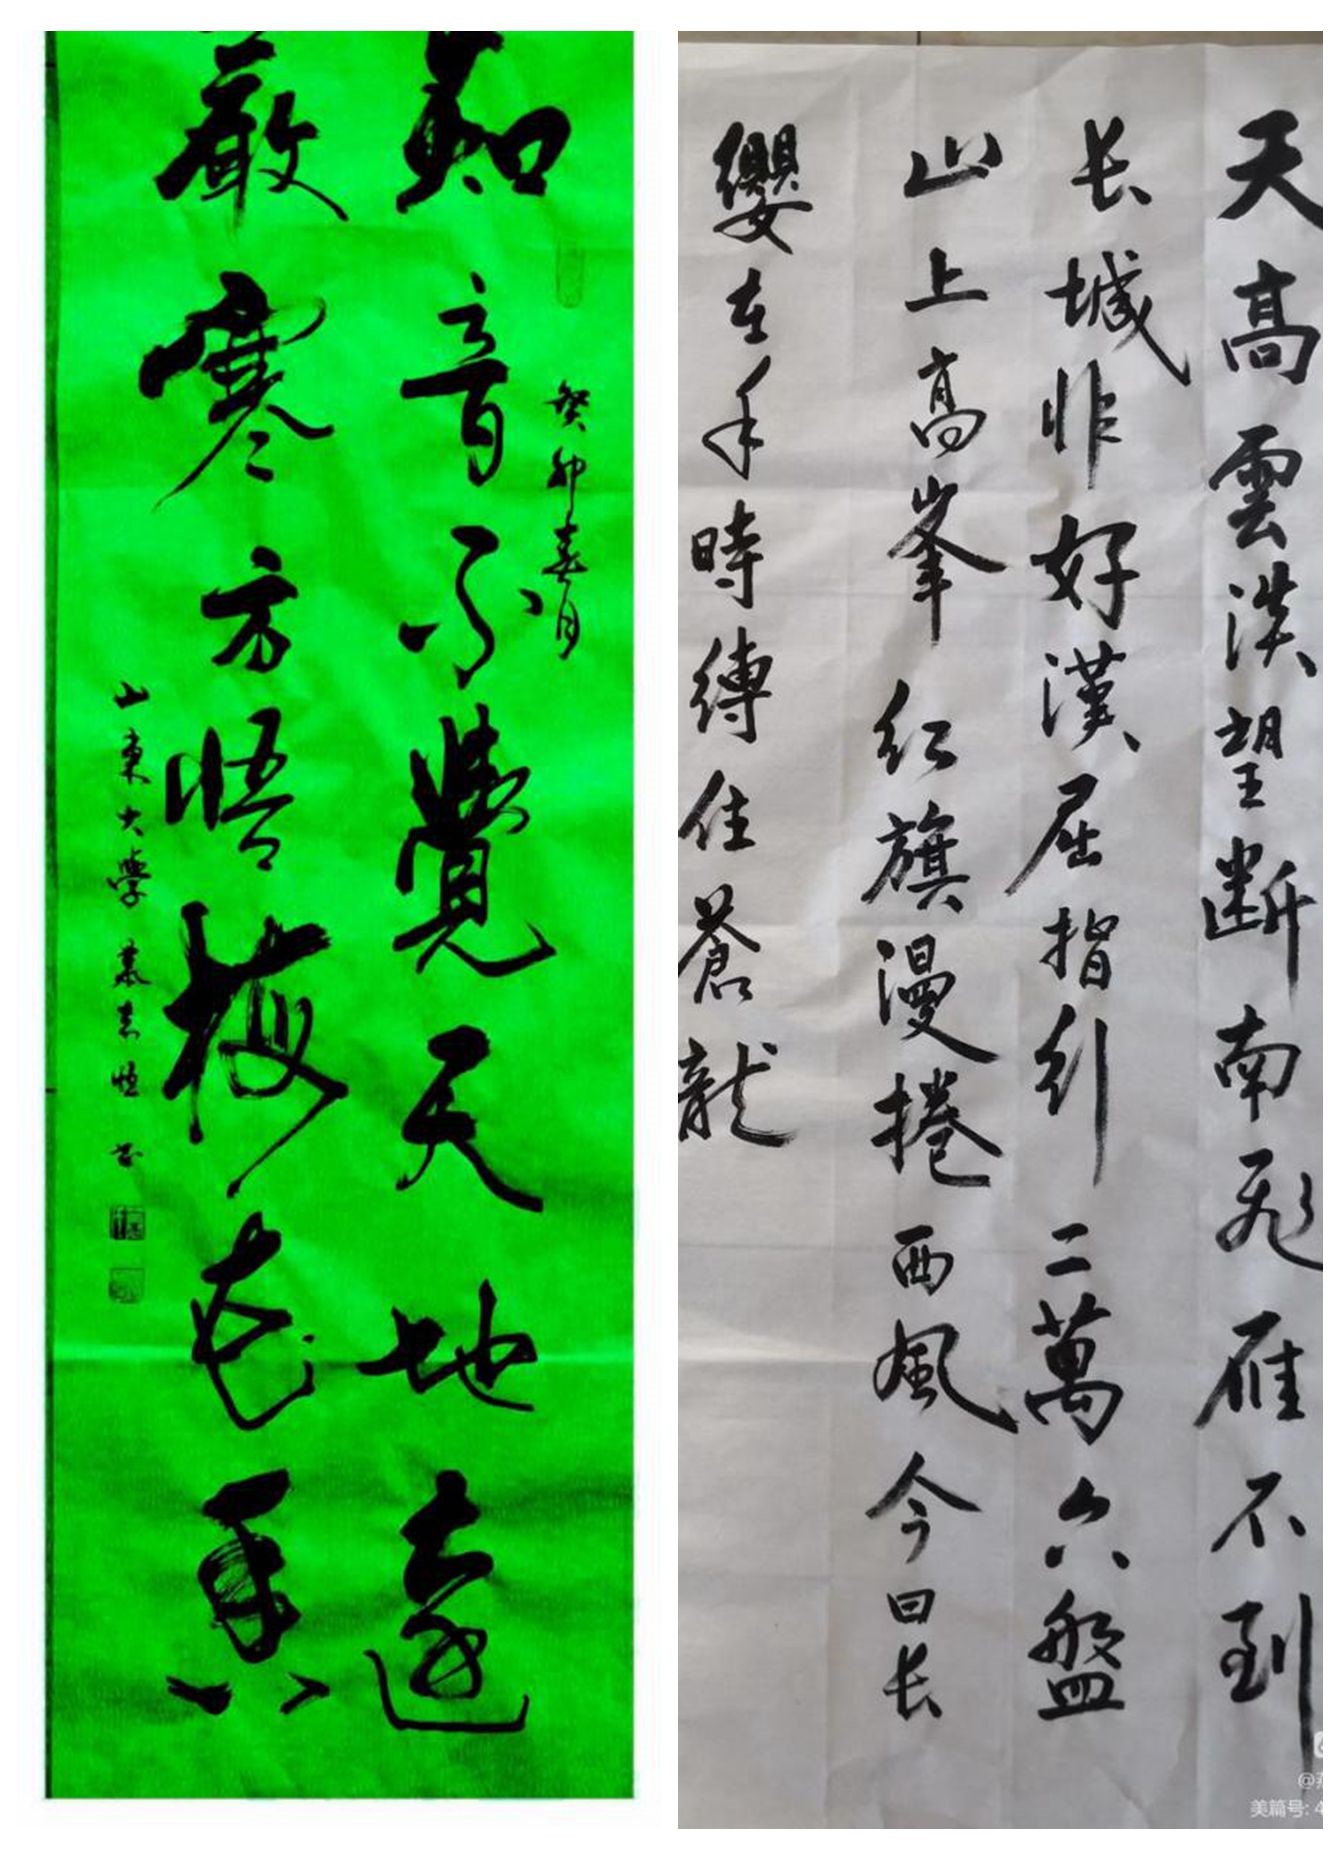 癸卯春月
知音不覺天地遠
嚴寒方悟梅花真
山東大學
天高雲淡望断南飛雁不到
长城非好漢屈指行二萬六盤
山上高峯红旗漫捲西風今日长
纓在手時縛住蒼龍
美篇号: 4